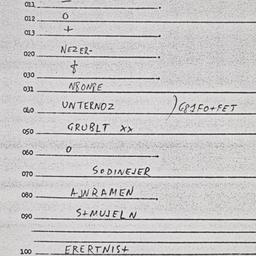 011
012 O
013 +
020 NEZER-
030 $
031 N80NBE
040 UNTERNOZ ) G81FO+FET
050 GRUBLT XX
060 O
070 SODINEJER
080 AJNRAMEN
090 S+MUJELN
100 ERERTNIS+